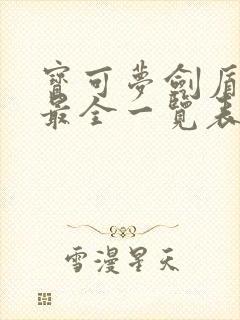 寶可夢劍盾
最全一覽表
雪漫星天